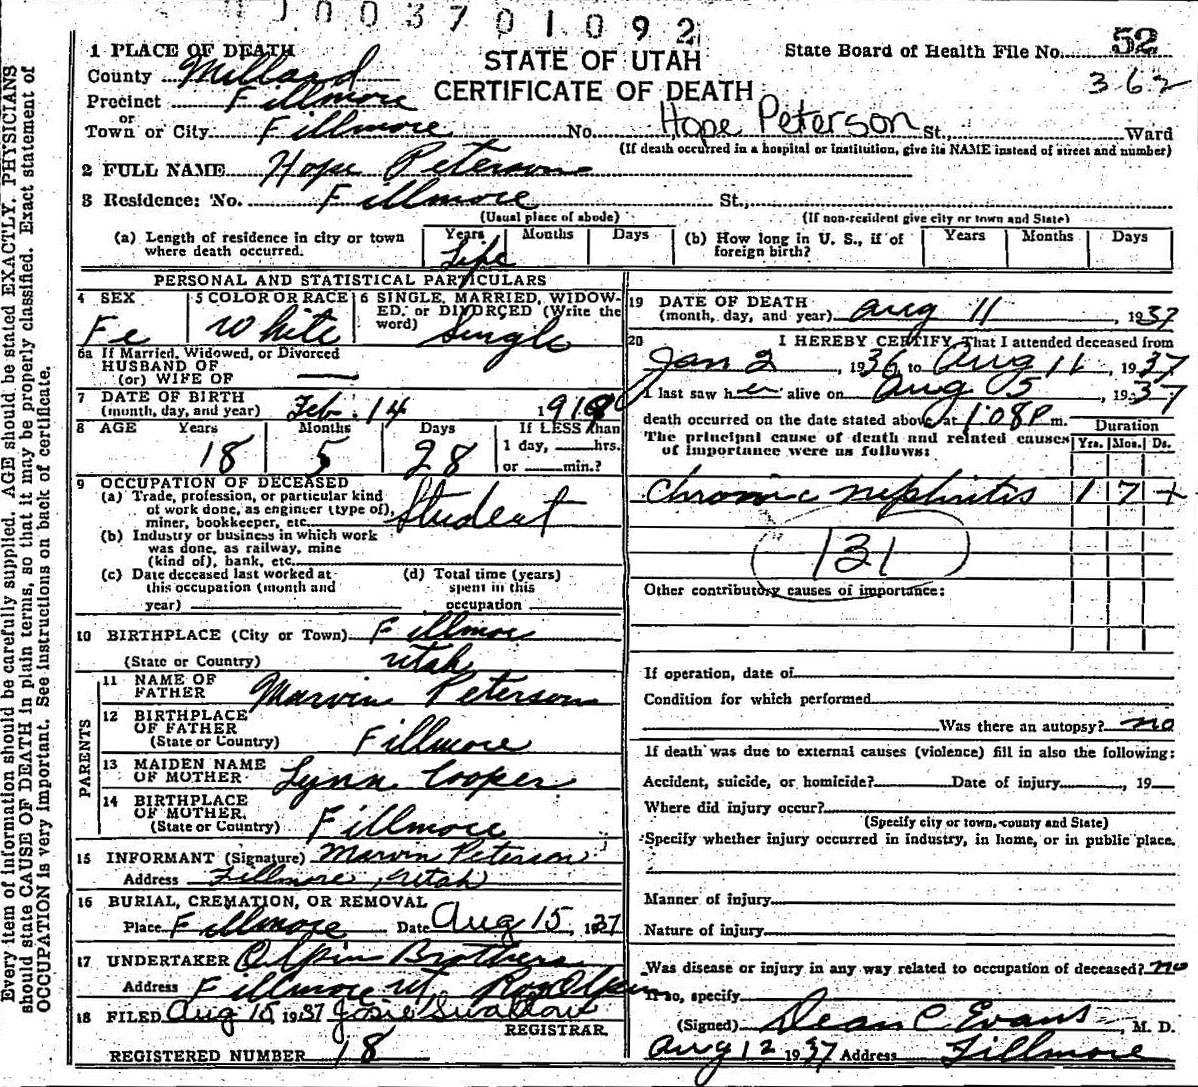 0 0 3 7 0 1 0 9 2
1 PLACE OF DEATH
County Millard
Precinct Fillmore
or
Town or City Fillmore No. Hope Peterson St., Ward
(If death occurred in a hospital or institution, give its NAME instead of street and number)
STATE OF UTAH
CERTIFICATE OF DEATH
State Board of Health File No. 52
362
2 FULL NAME Hope Peterson
3 Residence: No. Fillmore St.,
(Usual place of abode) (If non-resident give city or town and State)
(a) Length of residence in city or town where death occurred. Years Life Months Days
(b) How long in U. S., if of foreign birth? Years Months Days
PERSONAL AND STATISTICAL PARTICULARS
4 SEX Fe
5 COLOR OR RACE White
6 SINGLE, MARRIED, WIDOWED. or DIVORCED (Write the word) Single
6a If Married, Widowed, or Divorced
HUSBAND OF
(or) WIFE OF
7 DATE OF BIRTH
(month, day, and year) Feb. 14 191
8 AGE Years 18 Months 5 Days 28
If LESS than
1 day, hrs.
or min.?
9 OCCUPATION OF DECEASED
(a) Trade, profession, or particular kind
of work done, as engineer (type of),
miner, bookkeeper, etc. Student
(b) Industry or business in which work
was done, as railway, mine
(kind of), bank, etc.
(c) Date deceased last worked at
this occupation (month and
year)
(d) Total time (years)
spent in this
occupation
10 BIRTHPLACE (City or Town) Fillmore
(State or Country) Utah
PARENTS
11 NAME OF
FATHER Marvin Peterson
12 BIRTHPLACE
OF FATHER
(State or Country) Fillmore
13 MAIDEN NAME
OF MOTHER Lynn Cooper
14 BIRTHPLACE
OF MOTHER.
(State or Country) Fillmore
15 INFORMANT (Signature) Marvin Peterson
Address Fillmore, Utah
16 BURIAL, CREMATION, OR REMOVAL
Place Fillmore Date Aug 15, 1937
17 UNDERTAKER Olpin Brothers
Address Fillmore Ut Roy Olpin
18 FILED Aug 15 1937 Josie Swallow
REGISTRAR
REGISTERED NUMBER 18
19 DATE OF DEATH
(month, day, and year) Aug 11, 1937
20 I HEREBY CERTIFY That I attended deceased from
Jan 2, 1936, to Aug 11, 1937
I last saw her alive on Aug 05, 1937
death occurred on the date stated above, at 1:08P m.
The principal cause of death and related causes
of importance were as follows:
Duration
Yrs. Mos. Ds.
Chronic nephritis 1 7 +
131
Other contributory causes of importance:
If operation, date of
Condition for which performed
Was there an autopsy? no
If death was due to external causes (violence) fill in also the following:
Accident, suicide, or homicide? Date of injury , 19
Where did injury occur?
(Specify city or town, county and State)
Specify whether injury occurred in industry, in home, or in public place.
Manner of injury
Nature of injury
Was disease or injury in any way related to occupation of deceased? no
If so, specify
(Signed) Dean C Evans, M. D.
Aug 12 1937 Address Fillmore
Every item of information should be carefully supplied. AGE should be stated EXACTLY. PHYSICIANS
should state CAUSE OF DEATH in plain terms, so that it may be properly classified. Exact statement of
OCCUPATION is very important. See instructions on back of certificate.